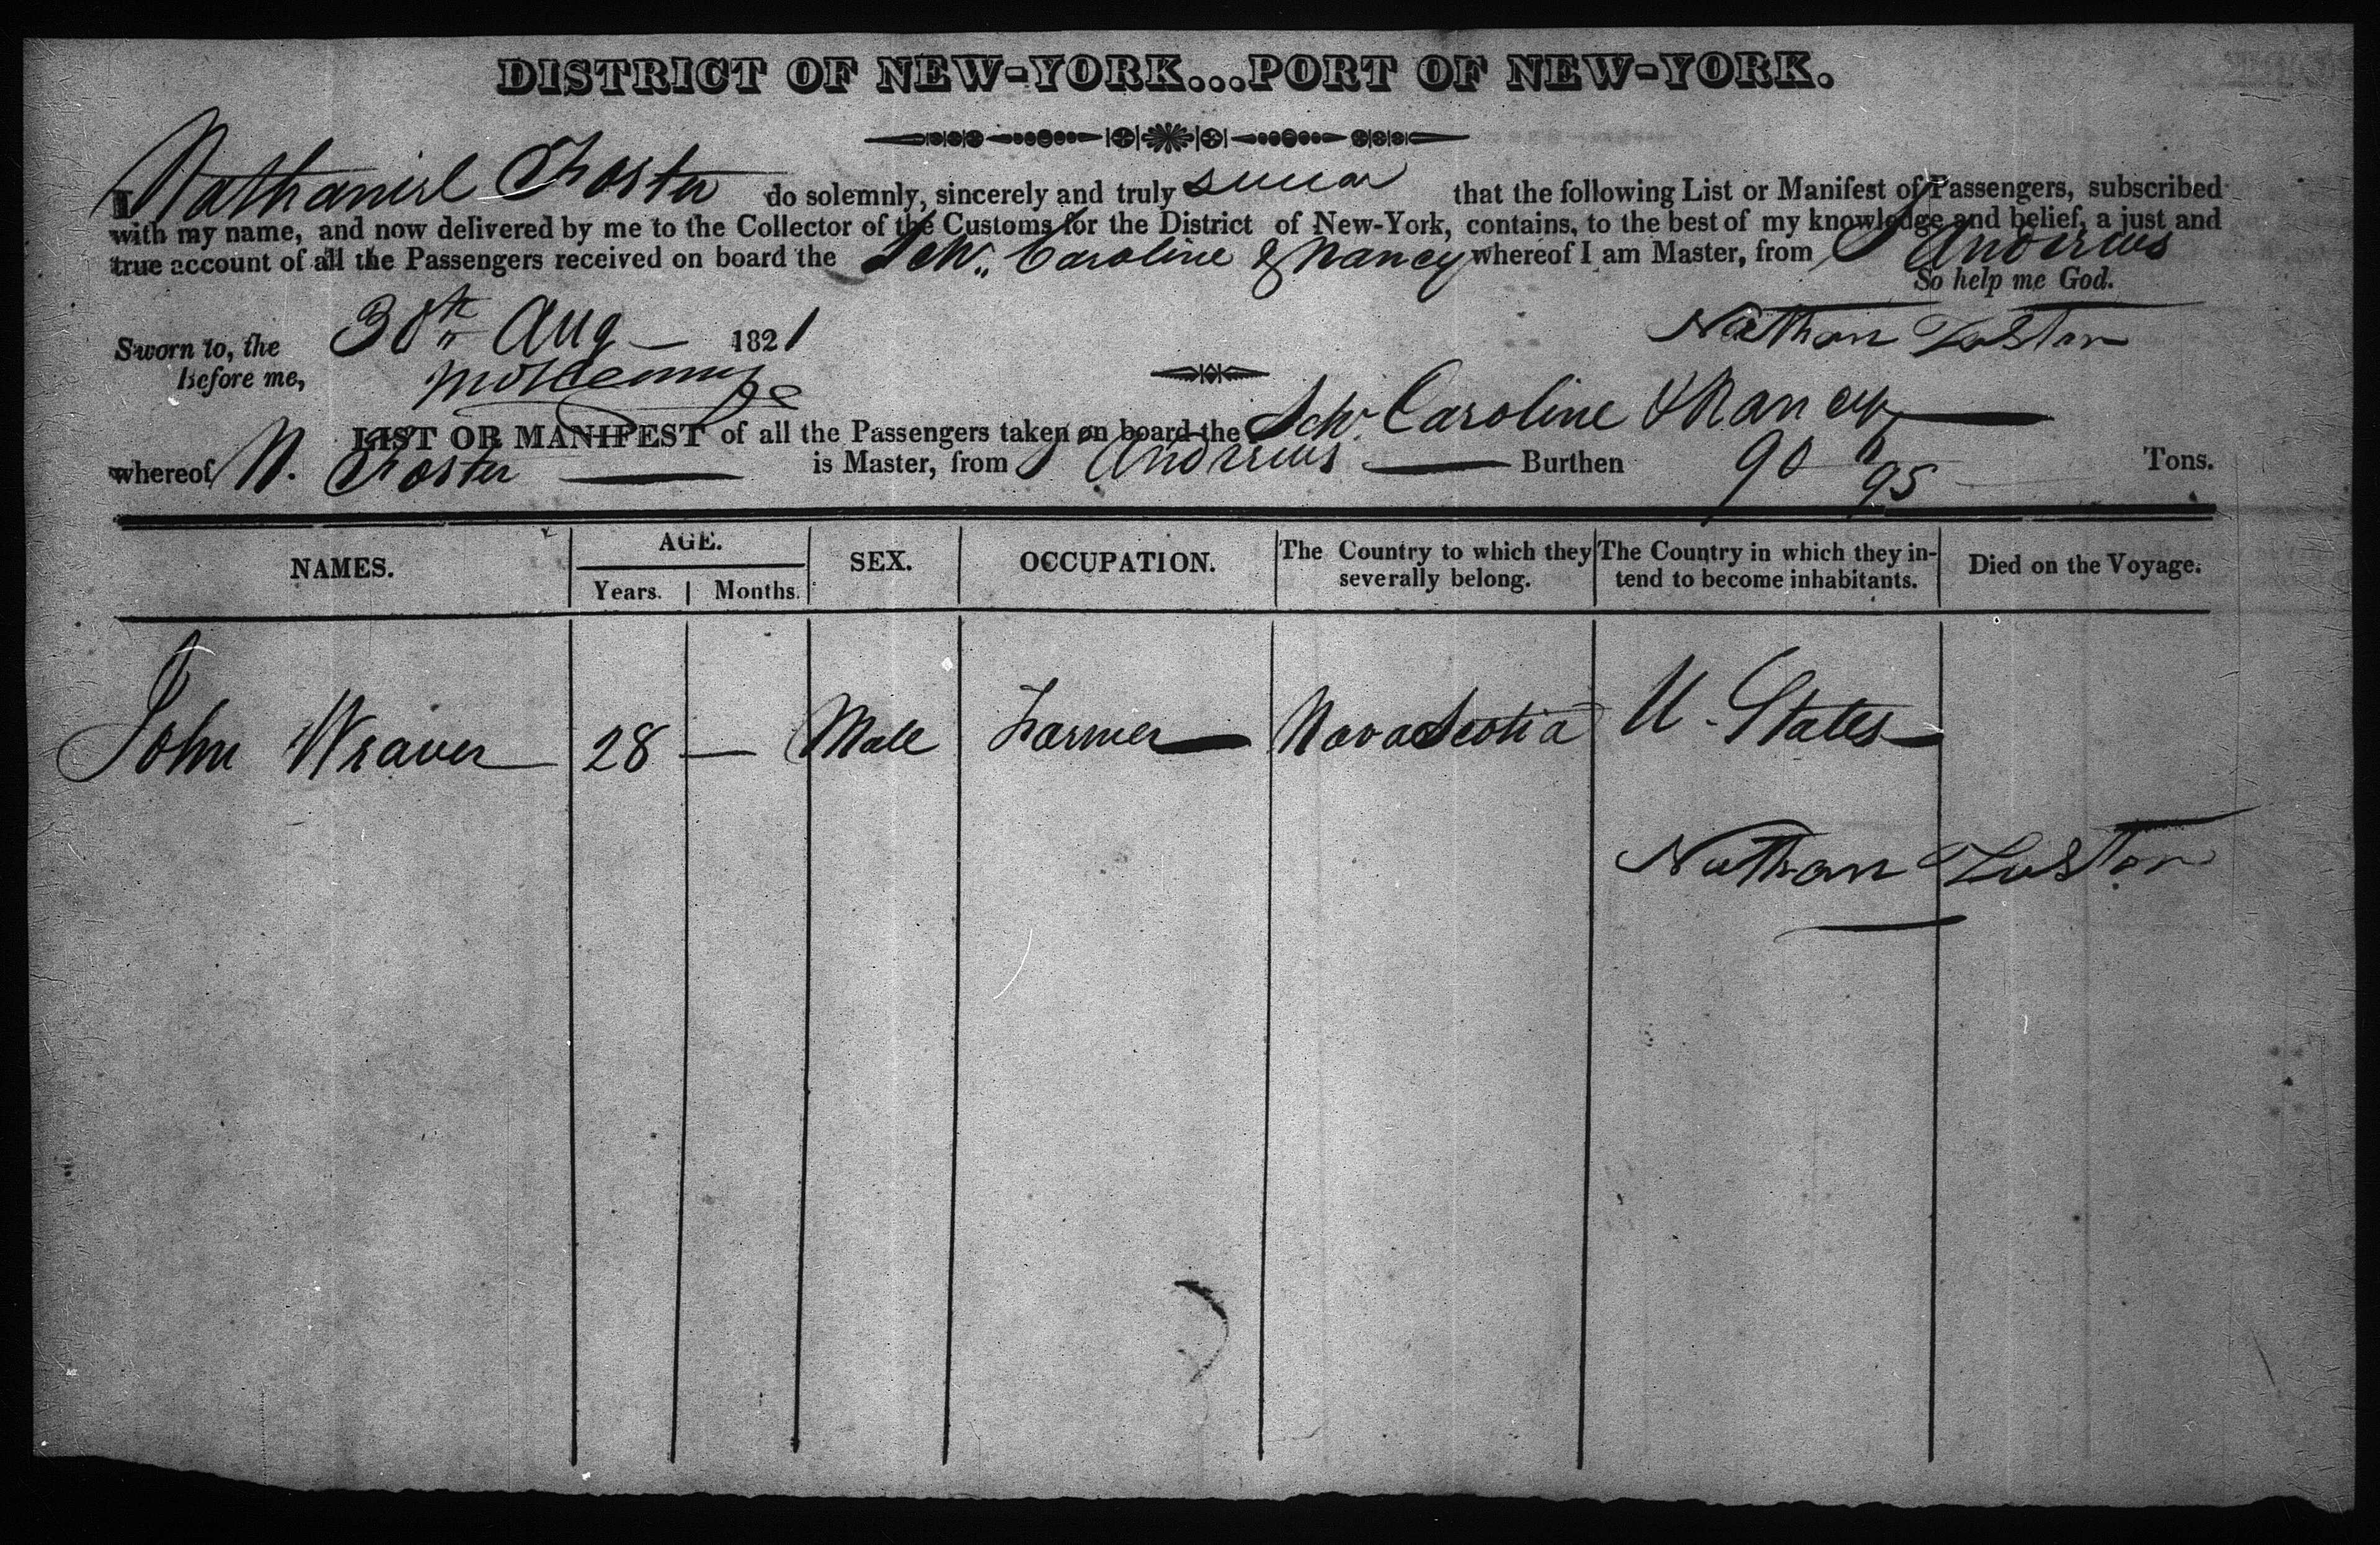 DISTRICT OF NEW-YORK...PORT OF NEW-YORK.
I Nathaniel Foster do solemnly, sincerely and truly swear that the following List or Manifest of Passengers, subscribed
with my name, and now delivered by me to the Collector of the Customs for the District of New-York, contains, to the best of my knowledge and belief, a just and
true account of all the Passengers received on board the Schr. Caroline & Nancy whereof I am Master, from St Andrews
So help me God.
Sworn to, the 30th Aug 1821 Nathan Foster
Before me,
LIST OR MANIFEST of all the Passengers taken on board the Schr Caroline & Nancy
whereof N. Foster is Master, from St Andrews Burthen 90 95 Tons.
NAMES. AGE. SEX. OCCUPATION. The Country to which they severally belong. The Country in which they intend to become inhabitants. Died on the Voyage.
Years. Months.
John Weaver 28 — Male Farmer Nova Scotia U. States
Nathan Foster